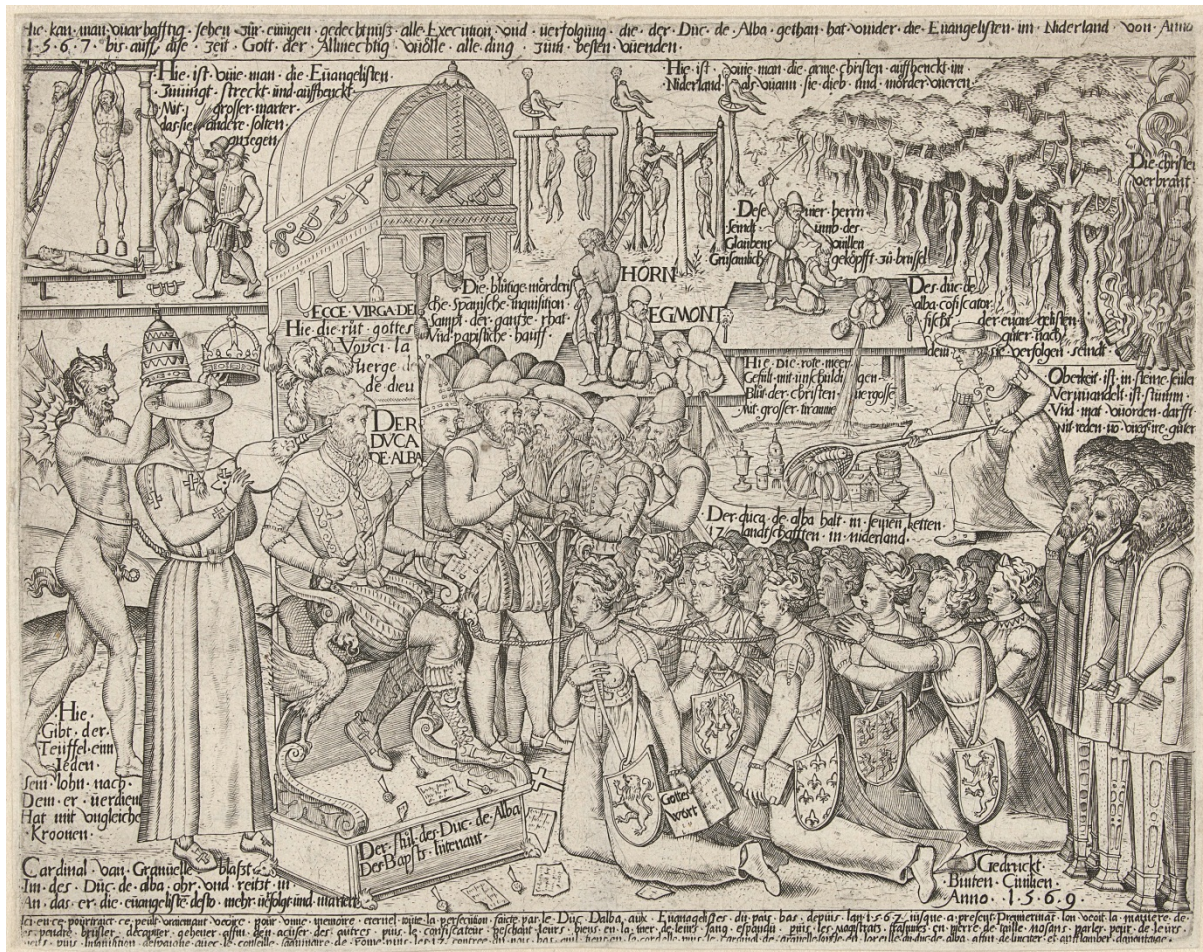 Hie·kan·man·vvarhafftig·sehen·zür·eüuigen·gedechtniß·alle·Execution·vnd·verfolgung·die·der·Duc·de·Alba·gethan·hat·vnder·die·Euangelisten·im·Niderland·von·Anno
1·5·6·7·bis·auff·dise·zeit·Gott·der·Allmechtig·vvolle·alle·ding·zum·besten·vvenden·
Hie·ist·vvie·man·die·Eüangelisten·
streckt·und·auffhenckt·
Mit·grosser·marter·
das·sie·andere·solten·
Hie·ist·vvie·man·die·arme·christen·auffhenck·im
Niderland·als·vvann·sie·dieb·und·mörder·vveren
Die·christen
verbrant
Dese·vier·herrn
seindt·umb·des
Glaubens·vvillen
Grusamlich·geköpfft·zů·brüssel
HORN
EGMONT
Die·blütige·mörderi
che·Spanische·inquisition·
Sampt·der·gantze·rhat·
Vnd·papistiche·hauff·
ECCE·VIRGA·DEI
Hie·die·rüt·gottes
Voyci·la
uerge·de
de·dieu
DER
DVCA
DE·ALBA
Des·duc·de·
alba·cofiscator·
fischt·der·euangelisten·
güter·nach·
dem·sie·verfolgen·seindt·
Hie·Die·rote·meer·
Gefült·mit·unschuldigen·
Blüt·der·christen·vergosse
Mit·grosser·
Oberkeit·ist·in·steine·seüler
Vervvandelt·ist·stumm·
Vnd·mat·vvorden·darff
nit·reden·vo·vnsere·güter
Der·ducq·de·alba·halt·in·seinen·ketten·
17·landtschafften·in·niderland·
Hie·
Gibt·der·
Teüffel·eim
Jeden·
sein·lohn·nach·
Dem·er·verdient
Hat·mit·vngleiche
Kroonen·
Gottes
wort
Der·stül·des·Duc·de·Alba
Des·Bapsts·lütenant·
Cardinal·van·Granüelle·blaßt·
Im·des·Düc·de·alba·ohr·vnd·reitzt·in
An·das·er·die·euangeliste·desto·mehr·
Gedruckt·
Binten·
Anno·1·5·6·9·
Ici·en·ce·pourtraict·ce·peult·vraiemant·veoire·pour·vnne·memoire·eternel·toute·la·persecution·faicte·par·le·Duc·Dalba·aux·Euuagelistes·du·pais·bas·depuis·lan·1·5·6·7·iusque·a·present·Premiermãt·lon·veoit·la·maniere·de·
pendre·brusler·decapiter·gehener·affin·den·acuser·des·autres·puis·le·confiscateur·peschant·leurs·biens·en·la·mer·de·leurs·sang·espandu·puis·les·magistrats·en·pierre·de·taille·nosans·parler·pour·de·leurs·